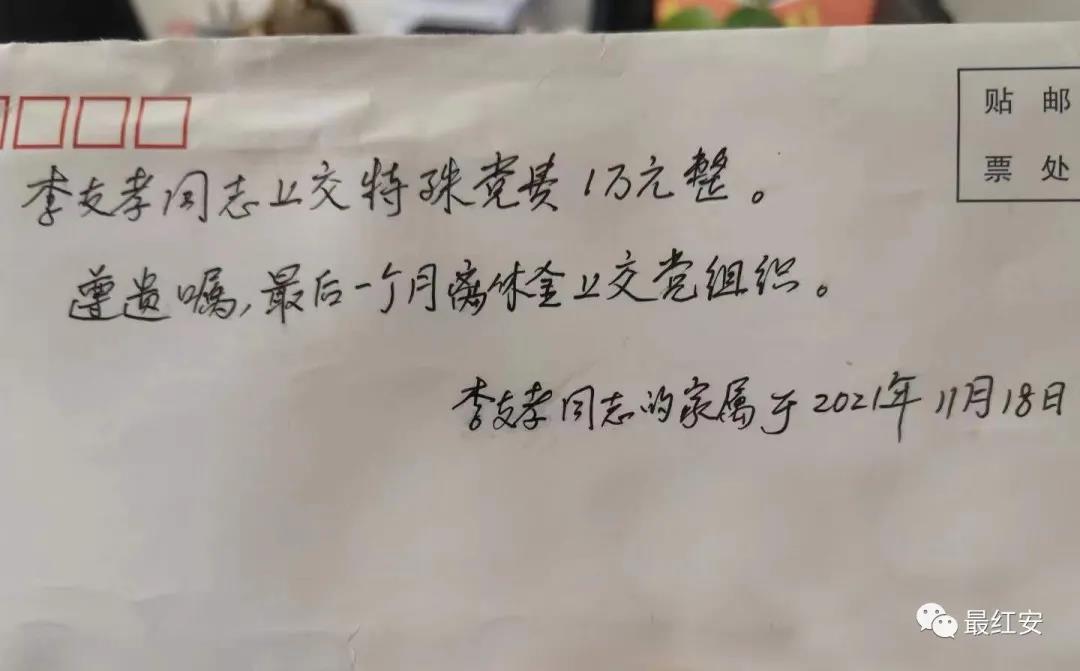 贴 邮
票 处
李友孝同志上交特殊党费1万元整。
遵遗嘱,最后一个月离休金上交党组织。
李友孝同志的家属于2021年11月18日
最红安